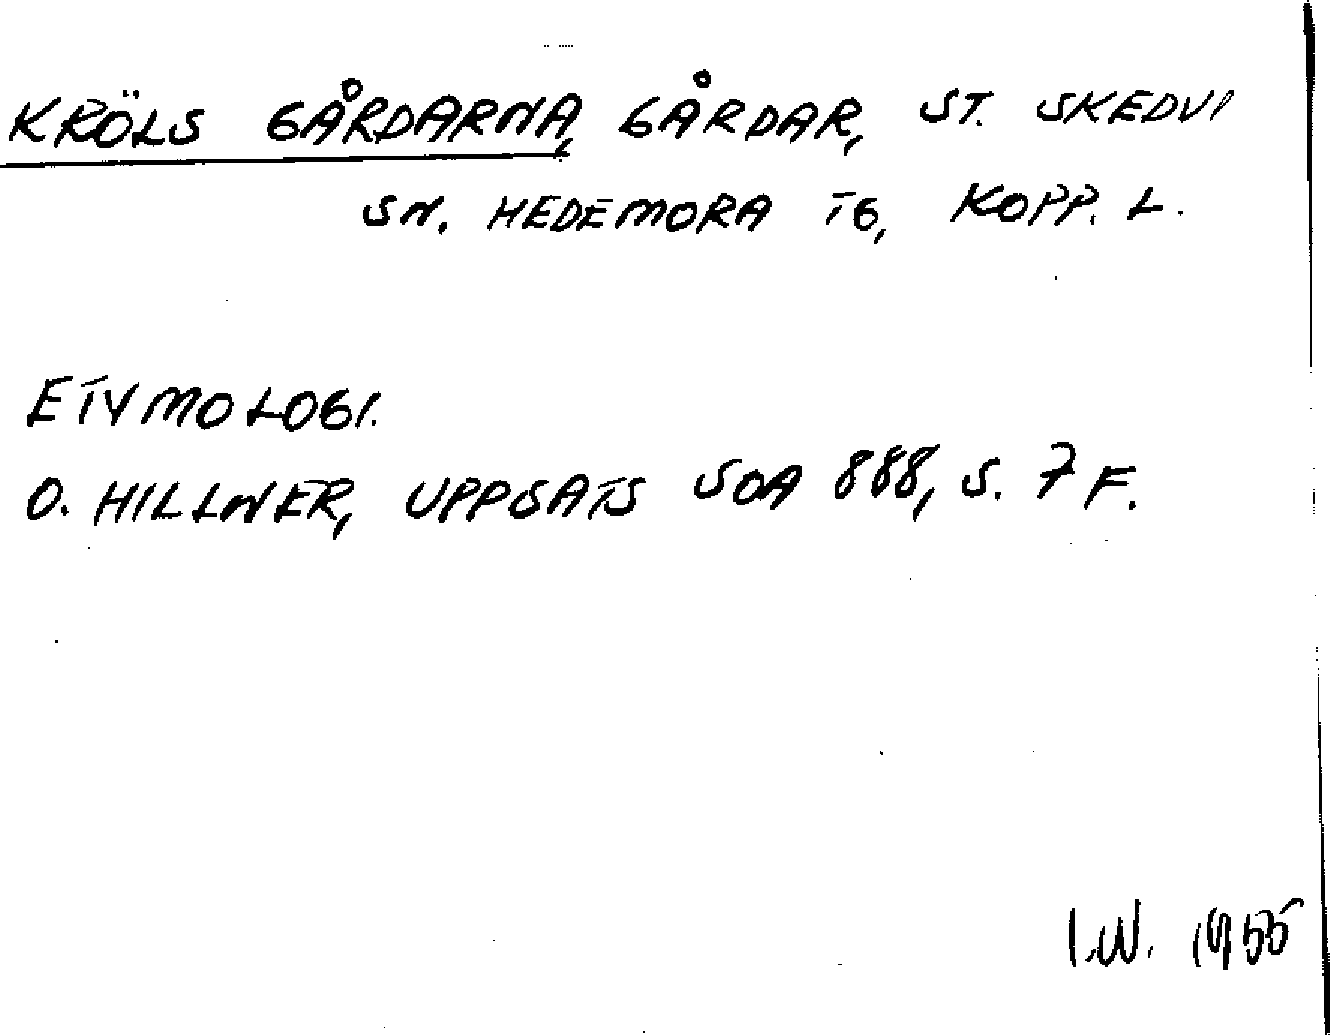 KRÖLS GÅRDARNA, GÅRDAR, ST. SKEDVI
SN. HEDEMORA TG, KOPP. L.
ETYMOLOGI.
O. HILLNER, UPPSATS SOA 888, S. 7 F.
I.W. 1955